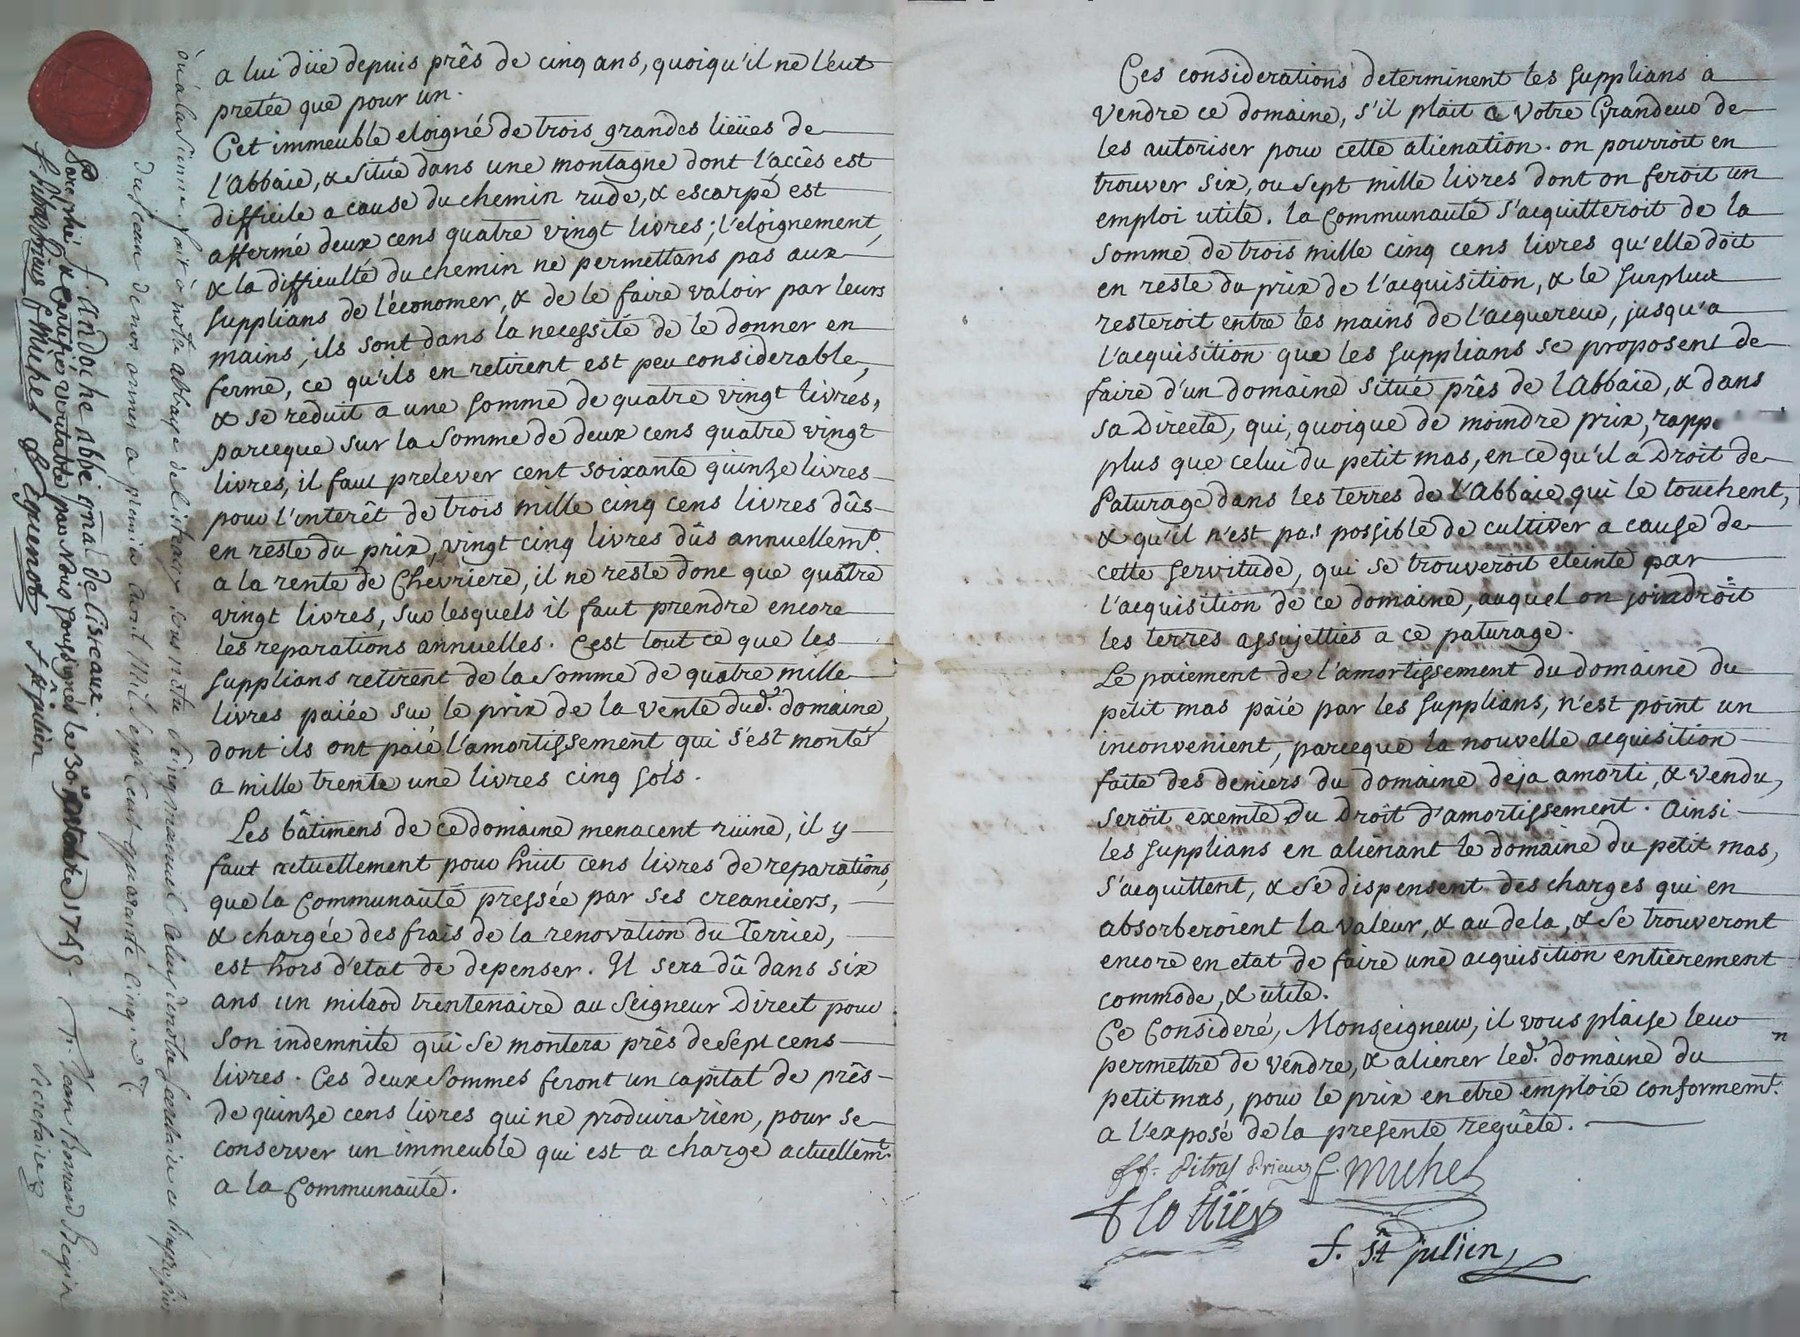 a lui düe depuis prês de cinq ans, quoiqu'il ne l'eut
pretée que pour un.
Cet immeuble eloigné de trois grandes lieües de
l'Abbaie, & situé dans une montagne dont l'accês est
difficile a cause du chemin rude, & escarpé est
affermé deux cens quatre vingt livres; l'eloignement,
& la difficulté du chemin ne permettans pas aux
supplians de l'économer, & de le faire valoir par leurs
mains, ils sont dans la necessité de le donner en
ferme, ce qu'ils en retirent est peu considerable,
& se reduit a une somme de quatre vingt livres,
parceque sur la somme de deux cens quatre vingt
livres, il faut prelever cent soixante quinze livres
pour l'interêt de trois mille cinq cens livres dûs
en reste du prix, vingt cinq livres dûs annuellemt.
a la rente de Chevriere, il ne reste donc que quatre
vingt livres, sur lesquels il faut prendre encore
les reparations annuelles. C'est tout ce que les
supplians retirent de la somme de quatre mille
livres paiée sur le prix de la vente dud. domaine,
dont ils ont paié l'amortissement qui s'est monté
a mille trente une livres cinq sols.
Les bâtimens de ce domaine menacent rüine, il y
faut actuellement pour huit cens livres de reparations,
que la Communauté pressée par ses creanciers,
& chargée des frais de la renovation du Terrier,
est hors d'état de depenser. Il sera dû dans six
ans un milaod trentenaire au Seigneur Direct pour
son indemnité qui se montera prês de sept cens
livres. Ces deux sommes feront un capital de prês
de quinze cens livres qui ne produira rien, pour se
conserver un immeuble qui est a charge actuellemt.
a la Communauté.
Ces considerations determinent les supplians a
vendre ce domaine, s'il plait a Votre Grandeur de
les autoriser pour cette alienation. on pourroit en
trouver six, ou sept mille livres dont on feroit un
emploi utile. la Communauté s'acquitteroit de la
somme de trois mille cinq cens livres qu'elle doit
en reste du prix de l'acquisition, & le surplus
resteroit entre les mains de l'acquereur, jusqu'a
l'acquisition que les supplians se proposent de
faire d'un domaine situé prês de l'Abbaie, & dans
sa Directe, qui, quoique de moindre prix, rapp
plus que celui du petit mas, en ce qu'il a Droit de
Paturage dans les terres de l'Abbaie qui le touchent,
& qu'il n'est pas possible de cultiver a cause de
cette servitude, qui se trouveroit éteinte par
l'acquisition de ce domaine, auquel on joindroit
les terres assujetties a ce paturage.
Le paiement de l'amortissement du domaine du
petit mas paié par les supplians, n'est point un
inconvenient, parceque la nouvelle acquisition
faite des deniers du domaine deja amorti, & vendu,
seroit exemte du Droit d'amortissement. Ainsi
les supplians en alienant le domaine du petit mas,
s'acquittent, & se dispensent des charges qui en
absorberoient la valeur, & au dela, & se trouveront
encore en etat de faire une acquisition entièrement
commode, & utile.
Ce Consideré, Monseigneur, il vous plaise leur
permettre de vendre, & aliener led. domaine du
petit mas, pour le prix en etre emploié conformemt.
a l'exposé de la presente requête.
ff. Pitras Prieur f. Michel
Flottier
f. St julien
Paraphé & Certifié veritable par Nous soussigné le 30 1745.
f. Andoche Abbé gnal de Cisteaux.
f. Michel
f. St julien
du sceau de nos armes a premier avril Mil Sept Cent quarante Cinq
fr. Jean
Secretaire